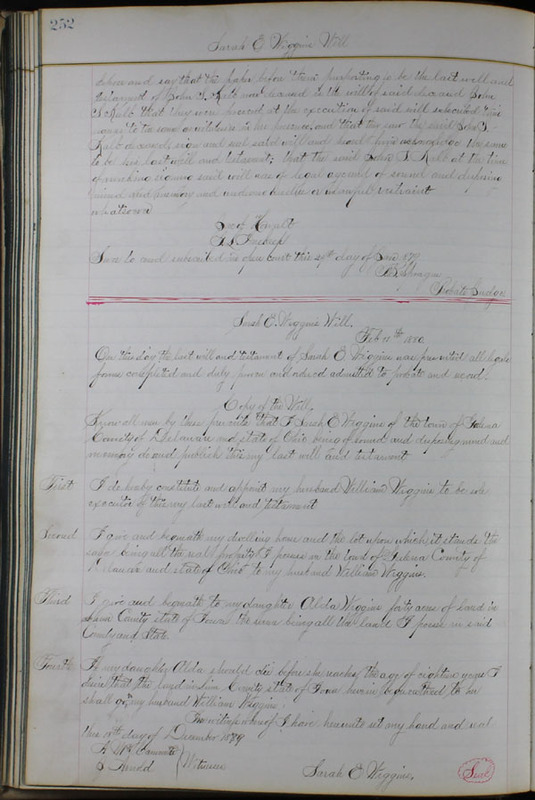 252
Sarah E. Wiggins Will
depose and say that the paper before them purporting to be the last will and
testament of John S. Kalb now deceased is the will of said deceased John
S. Kalb that they were present at the execution of said will subscribed their
names to the same as witnesses in his presence, and that they saw the said John S.
Kalb deceased, sign and seal said will and heard him acknowledge the same
to be his last will and testament; that the said John S. Kalb at the time
of making signing said will was of legal age and of sound and disposing
mind and memory and under no undue or unlawful restraint
whatsoever
Sworn to and subscribed in open court this 29th day of Jan
Probate Judge
Sarah E. Wiggins Will.
Feb 11th 1880
On this day the last will and testament of Sarah E. Wiggins was presented all legal
forms completed and duly proven and ordered admitted to probate and record.
Copy of the Will.
Know all men by these presents that I Sarah E Wiggins of the town of Galena
County of Delaware and state of Ohio being of sound and disposing mind and
memory do and publish this my last will and testament
First I do hereby constitute and appoint my husband William Wiggins to be sole
executor of this my last will and testament
Second I give and bequeath my dwelling house and the lot upon which it stands the
same being all the real property I possess in the town of Galena County of
Delaware and state of Ohio to my husband William Wiggins.
Third I give and bequeath to my daughter Alida Wiggins forty acres of land in
Linn County state of Iowa the same being all the land I possess in said
County and State.
Fourth If my daughter Alida should die before she reaches the age of eighteen years I
desire that the land in Linn County, state of Iowa herein bequeathed to her
shall go my husband William Wiggins.
In witness whereof I have hereunto set my hand and seal
this 10th day of December 1879
Witnesses
Sarah E. Wiggins. Seal